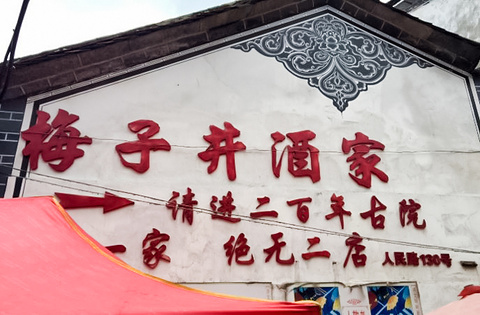 梅子井酒家
请进二百年古院
一家 绝无二店 人民路130号